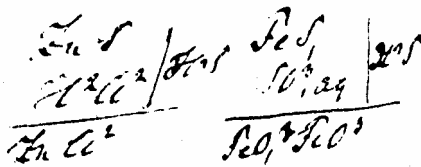 Zn S
H²Cl² | H²S
Zn Cl²
FeS,
SO³, aq | H²S
FeO, FeO³